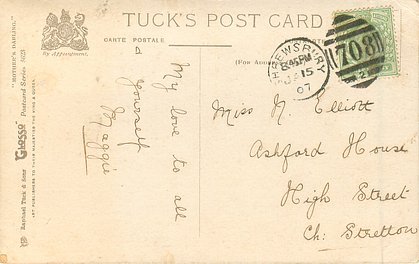 TUCK'S POST CARD
CARTE POSTALE
(For Address
By Appointment.
"MOTHER'S DARLING."
"GLOSSO" Postcard Series 5028
Raphael Tuck & Sons
ART PUBLISHERS TO THEIR MAJESTIES THE KING & QUEEN.
My love to all
& yourself
Maggie
SHREWSBURY
8.45PM
JA 15
07
708
Miss N. Elliott
Ashford House
High Street
Ch: Stretton